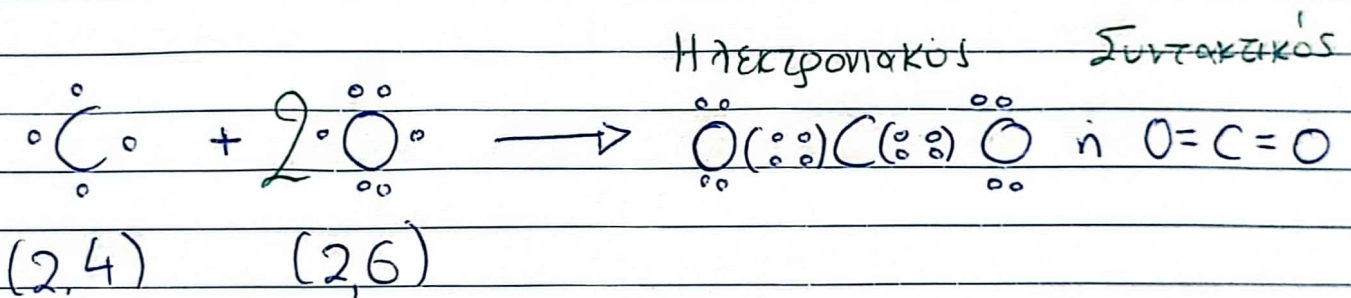 Ηλεκτρονιακός Συντακτικός
C + 2 O ⟶ O(::)C(::)O ή O=C=O
(2,4) (2,6)